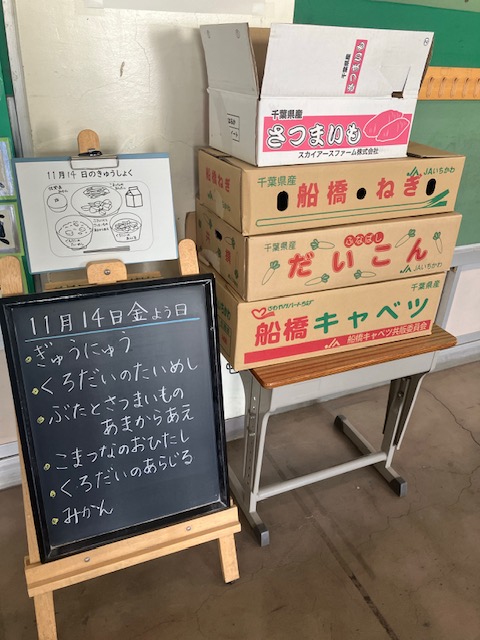 11月14日のきゅうしょく
11月14日金よう日
ぎゅうにゅう
くろだいのたいめし
ぶたとさつまいもの
あまからあえ
こまつなのおひたし
くろだいのあらじる
みかん
さつまいも
千葉県産
さつまいも
スカイアースファーム株式会社
JAいちかわ
千葉県産
船橋ねぎ
JAいちかわ
千葉県産
ふなばし
だいこん
JAいちかわ
千葉県産
船橋キャベツ
JA 船橋キャベツ共販委員会